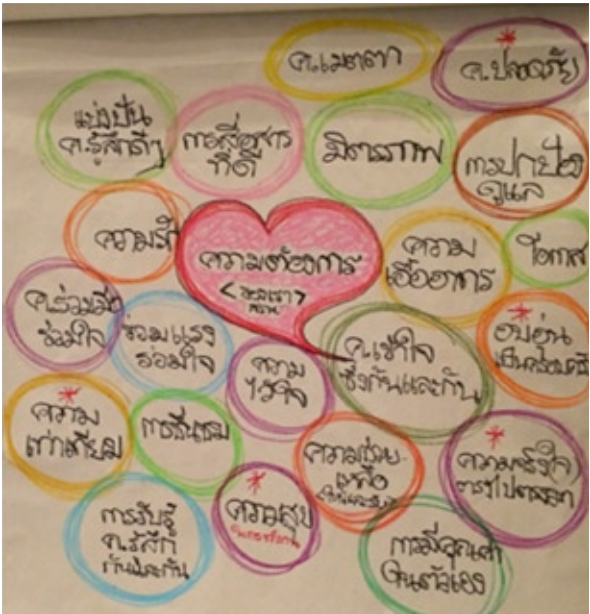 ค.เมตตา
ค.ปลอดภัย
แบ่งปัน
ค.รู้สึกดีๆ
การสื่อสาร
ที่ดี
มิตรภาพ
การปกป้อง
ดูแล
ความรัก
ความต้องการ
ความ
เอื้ออาทร
โอกาส
ค.ร่วมมือ
ร่วมใจ
ร่วมแรง
รวมใจ
ความ
ไว้ใจ
ค.เข้าใจ
ซึ่งกันและกัน
อบอุ่น
ความ
เท่าเทียม
การชื่นชม
ความช่วย
เหลือ
ความจริงใจ
ตรงไปตรงมา
การรับรู้
ค.รู้สึก
กันและกัน
ความสุข
การมีคุณค่า
ในตัวเอง